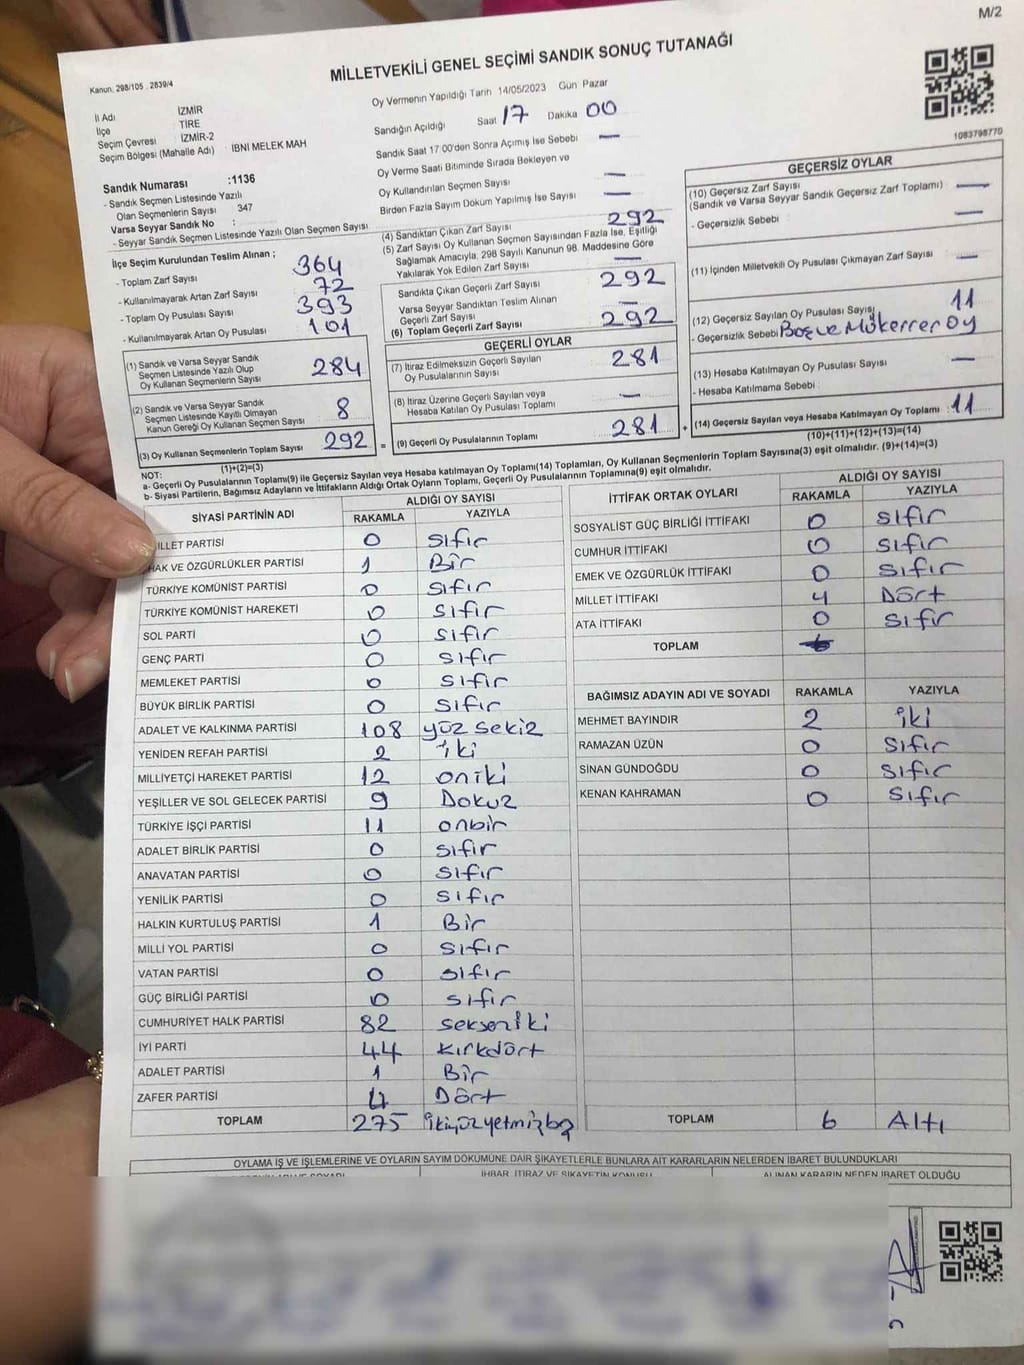 M/2
MİLLETVEKİLİ GENEL SEÇİMİ SANDIK SONUÇ TUTANAĞI
Kanun. 298/105 . 2839/4
İl Adı : İZMİR
İlçe : TİRE
Seçim Çevresi : İZMİR-2
Seçim Bölgesi (Mahalle Adı) : İBNİ MELEK MAH
Sandık Numarası :1136
- Sandık Seçmen Listesinde Yazılı
Olan Seçmenlerin Sayısı : 347
Varsa Seyyar Sandık No :
- Seyyar Sandık Seçmen Listesinde Yazılı Olan Seçmen Sayısı :
İlçe Seçim Kurulundan Teslim Alınan ;
- Toplam Zarf Sayısı 364
- Kullanılmayarak Artan Zarf Sayısı 72
- Toplam Oy Pusulası Sayısı 393
- Kullanılmayarak Artan Oy Pusulası 101
(1) Sandık ve Varsa Seyyar Sandık
Seçmen Listesinde Yazılı Olup
Oy Kullanan Seçmenlerin Sayısı 284
(2) Sandık ve Varsa Seyyar Sandık
Seçmen Listesinde Kayıtlı Olmayan
Kanun Gereği Oy Kullanan Seçmen Sayısı 8
(3) Oy Kullanan Seçmenlerin Toplam Sayısı 292 =
(1)+(2)=(3)
Oy Vermenin Yapıldığı Tarih 14/05/2023 Gün Pazar
Sandığın Açıldığı Saat 17 Dakika 00
Sandık Saat 17:00'den Sonra Açımış İse Sebebi —
Oy Verme Saati Bitiminde Sırada Bekleyen ve
Oy Kullandırılan Seçmen Sayısı —
Birden Fazla Sayım Döküm Yapılmış İse Sayısı —
(4) Sandıktan Çıkan Zarf Sayısı 292
(5) Zarf Sayısı Oy Kullanan Seçmen Sayısından Fazla İse, Eşitliği
Sağlamak Amacıyla, 298 Sayılı Kanunun 98. Maddesine Göre
Yakılarak Yok Edilen Zarf Sayısı —
Sandıkta Çıkan Geçerli Zarf Sayısı 292
Varsa Seyyar Sandıktan Teslim Alınan
Geçerli Zarf Sayısı —
(6) Toplam Geçerli Zarf Sayısı 292
GEÇERLİ OYLAR
(7) İtiraz Edilmeksizin Geçerli Sayılan
Oy Pusulalarının Sayısı 281
(8) İtiraz Üzerine Geçerli Sayılan veya
Hesaba Katılan Oy Pusulası Toplamı —
(9) Geçerli Oy Pusulalarının Toplamı 281 +
1083798770
GEÇERSİZ OYLAR
(10) Geçersiz Zarf Sayısı
(Sandık ve Varsa Seyyar Sandık Geçersiz Zarf Toplamı) —
- Geçersizlik Sebebi : —
(11) İçinden Milletvekili Oy Pusulası Çıkmayan Zarf Sayısı —
(12) Geçersiz Sayılan Oy Pusulası Sayısı 11
- Geçersizlik Sebebi Boş ve Mükerrer Oy
(13) Hesaba Katılmayan Oy Pusulası Sayısı —
- Hesaba Katılmama Sebebi :
(14) Geçersiz Sayılan veya Hesaba Katılmayan Oy Toplamı : 11
(10)+(11)+(12)+(13)=(14)
NOT:
a- Geçerli Oy Pusulasının Toplamı(9) ile Geçersiz Sayılan veya Hesaba katılmayan Oy Toplamı(14) Toplamları, Oy Kullanan Seçmenlerin Toplam Sayısına(3) eşit olmalıdır. (9)+(14)=(3)
b- Siyasi Partilerin, Bağımsız Adayların ve İttifakların Aldığı Ortak Oyların Toplamı, Geçerli Oy Pusulalarının Toplamına(9) eşit olmalıdır.
SİYASİ PARTİNİN ADI ALDIĞI OY SAYISI
RAKAMLA YAZIYLA
İLLET PARTİSİ 0 sıfır
HAK VE ÖZGÜRLÜKLER PARTİSİ 1 Bir
TÜRKİYE KOMÜNİST PARTİSİ 0 sıfır
TÜRKİYE KOMÜNİST HAREKETİ 0 sıfır
SOL PARTİ 0 sıfır
GENÇ PARTİ 0 sıfır
MEMLEKET PARTİSİ 0 sıfır
BÜYÜK BİRLİK PARTİSİ 0 sıfır
ADALET VE KALKINMA PARTİSİ 108 yüz sekiz
YENİDEN REFAH PARTİSİ 2 iki
MİLLİYETÇİ HAREKET PARTİSİ 12 oniki
YEŞİLLER VE SOL GELECEK PARTİSİ 9 Dokuz
TÜRKİYE İŞÇİ PARTİSİ 11 onbir
ADALET BİRLİK PARTİSİ 0 sıfır
ANAVATAN PARTİSİ 0 sıfır
YENİLİK PARTİSİ 0 sıfır
HALKIN KURTULUŞ PARTİSİ 1 Bir
MİLLİ YOL PARTİSİ 0 sıfır
VATAN PARTİSİ 0 sıfır
GÜÇ BİRLİĞİ PARTİSİ 0 sıfır
CUMHURİYET HALK PARTİSİ 82 sekseniki
İYİ PARTİ 44 kırkdört
ADALET PARTİSİ 1 Bir
ZAFER PARTİSİ 4 Dört
TOPLAM 275 ikiyüzyetmişbş
İTTİFAK ORTAK OYLARI ALDIĞI OY SAYISI
RAKAMLA YAZIYLA
SOSYALİST GÜÇ BİRLİĞİ İTTİFAKI 0 sıfır
CUMHUR İTTİFAKI 0 sıfır
EMEK VE ÖZGÜRLÜK İTTİFAKI 0 sıfır
MİLLET İTTİFAKI 4 Dört
ATA İTTİFAKI 0 sıfır
TOPLAM
BAĞIMSIZ ADAYIN ADI VE SOYADI RAKAMLA YAZIYLA
MEHMET BAYINDIR 2 iki
RAMAZAN ÜZÜN 0 sıfır
SİNAN GÜNDOĞDU 0 sıfır
KENAN KAHRAMAN 0 sıfır
TOPLAM 6 Altı
OYLAMA İŞ VE İŞLEMLERİNE VE OYLARIN SAYIM DÖKÜMÜNE DAİR ŞİKAYETLERLE BUNLARA AİT KARARLARIN NELERDEN İBARET BULUNDUKLARI
İHBAR, İTİRAZ VE ŞİKAYETİN KONUSU ALINAN KARARIN NEDEN İBARET OLDUĞU